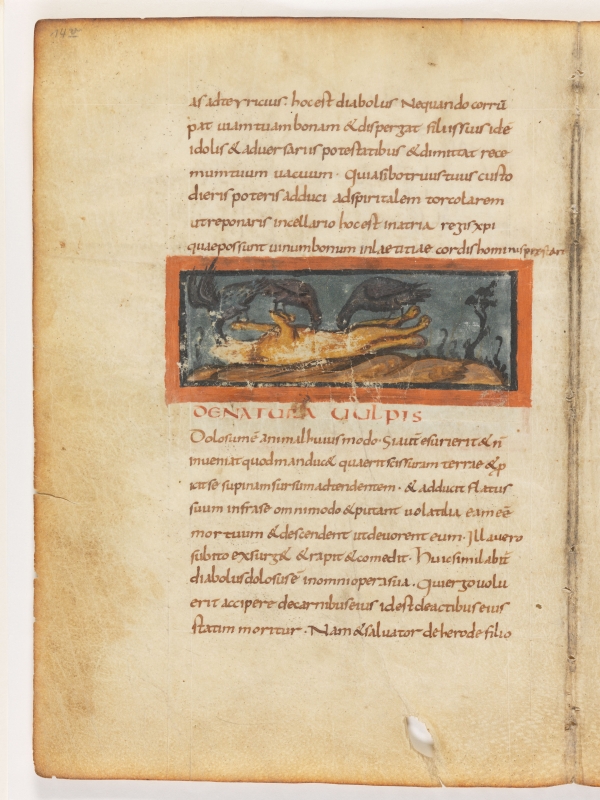 as adte yricius. hoc est diabolus Nequando corrū
pat uiam tuam bonam & dispergat filiis suis idē
idolis & aduersariis potestatibus & dimittat rece
mum tuum uacuum. Quia si botruis tuis custo
dieris poteris adduci ad spiritalem torcolarem
ut reponaris in cellario hoc est in atria regis xpi
quae possunt uinum bonum in laetitiae cordis hominis
DE NATURA UULPIS
Dolosum ē animal huius modo. Si aut̄ esurierit & n̄
inueniat quod manduc& quaerit scissuram terrae & p
icit se supinam sursum adtendentem. & adducit flatus
suum infra se omnimodo & putant uolatilia eam eē
mortuum & descendent ut deuorent eum. Illa uero
subito exsurg& & rapit & comedit. Huic similabit̄
diabolus dolosus ē in omni opera sua. Qui ergo uolu
erit accipere de carnibus eius id est de actibus eius
statim moritur. Nam & saluator de herode filio